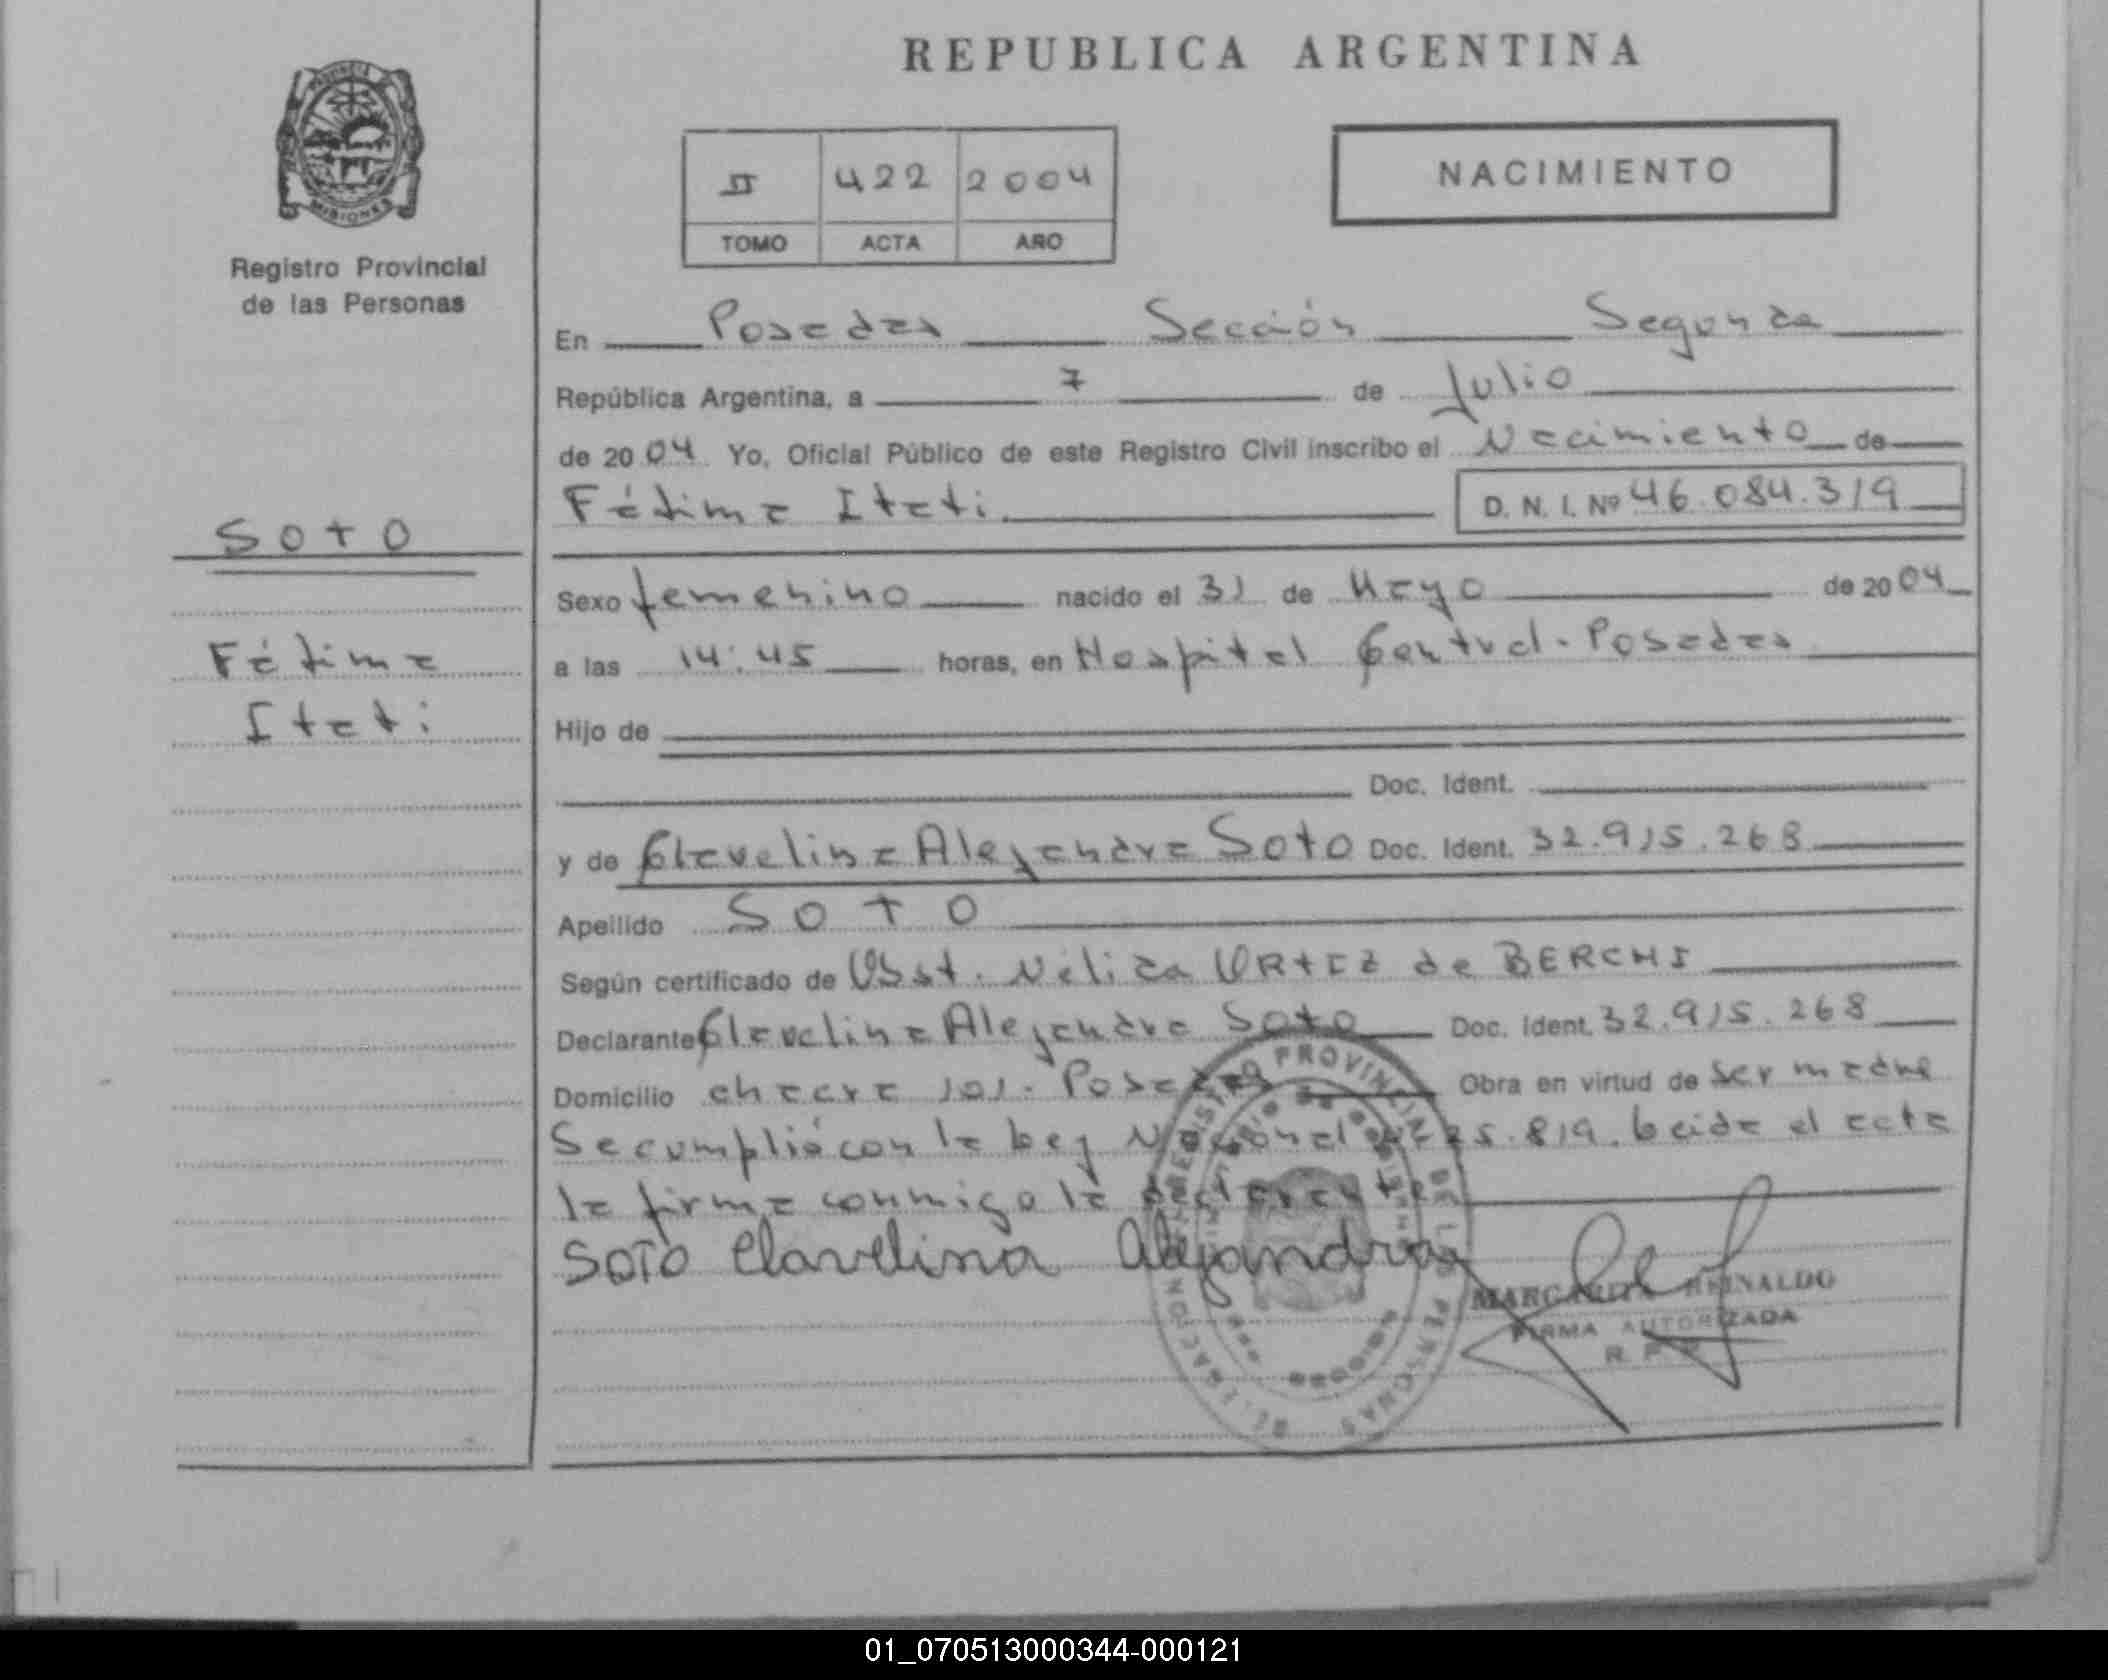 REPUBLICA ARGENTINA
PROVINCIA
MISIONES
Registro Provincial
de las Personas
II 422 2004
TOMO ACTA AÑO
NACIMIENTO
En Posadas Sección Segunda
República Argentina, a 7 de Julio
de 2004 Yo, Oficial Público de este Registro Civil inscribo el Nacimiento de
Fátima Itatí D. N. I. Nº 46.084.319
SOTO
Fátima
Itatí
Sexo femenino nacido el 31 de Mayo de 2004
a las 14:45 horas, en Hospital Central - Posadas
Hijo de
Doc. Ident.
y de Clavelina Alejandra Soto Doc. Ident. 32.915.268
Apellido SOTO
Según certificado de Obst. Nélida ORTIZ de BERCHI
Declarante Clavelina Alejandra Soto Doc. Ident. 32.915.268
Domicilio chacra 101 - Posadas Obra en virtud de ser madre
Se cumplió con la Ley Nacional 25.819. Leida el acta
la firma conmigo la declarante
SOTO Clavelina Alejandra
REGISTRO PROVINCIAL DE LAS PERSONAS
MARGARITA REINALDO
FIRMA AUTORIZADA
R. P. P.
01_070513000344-000121